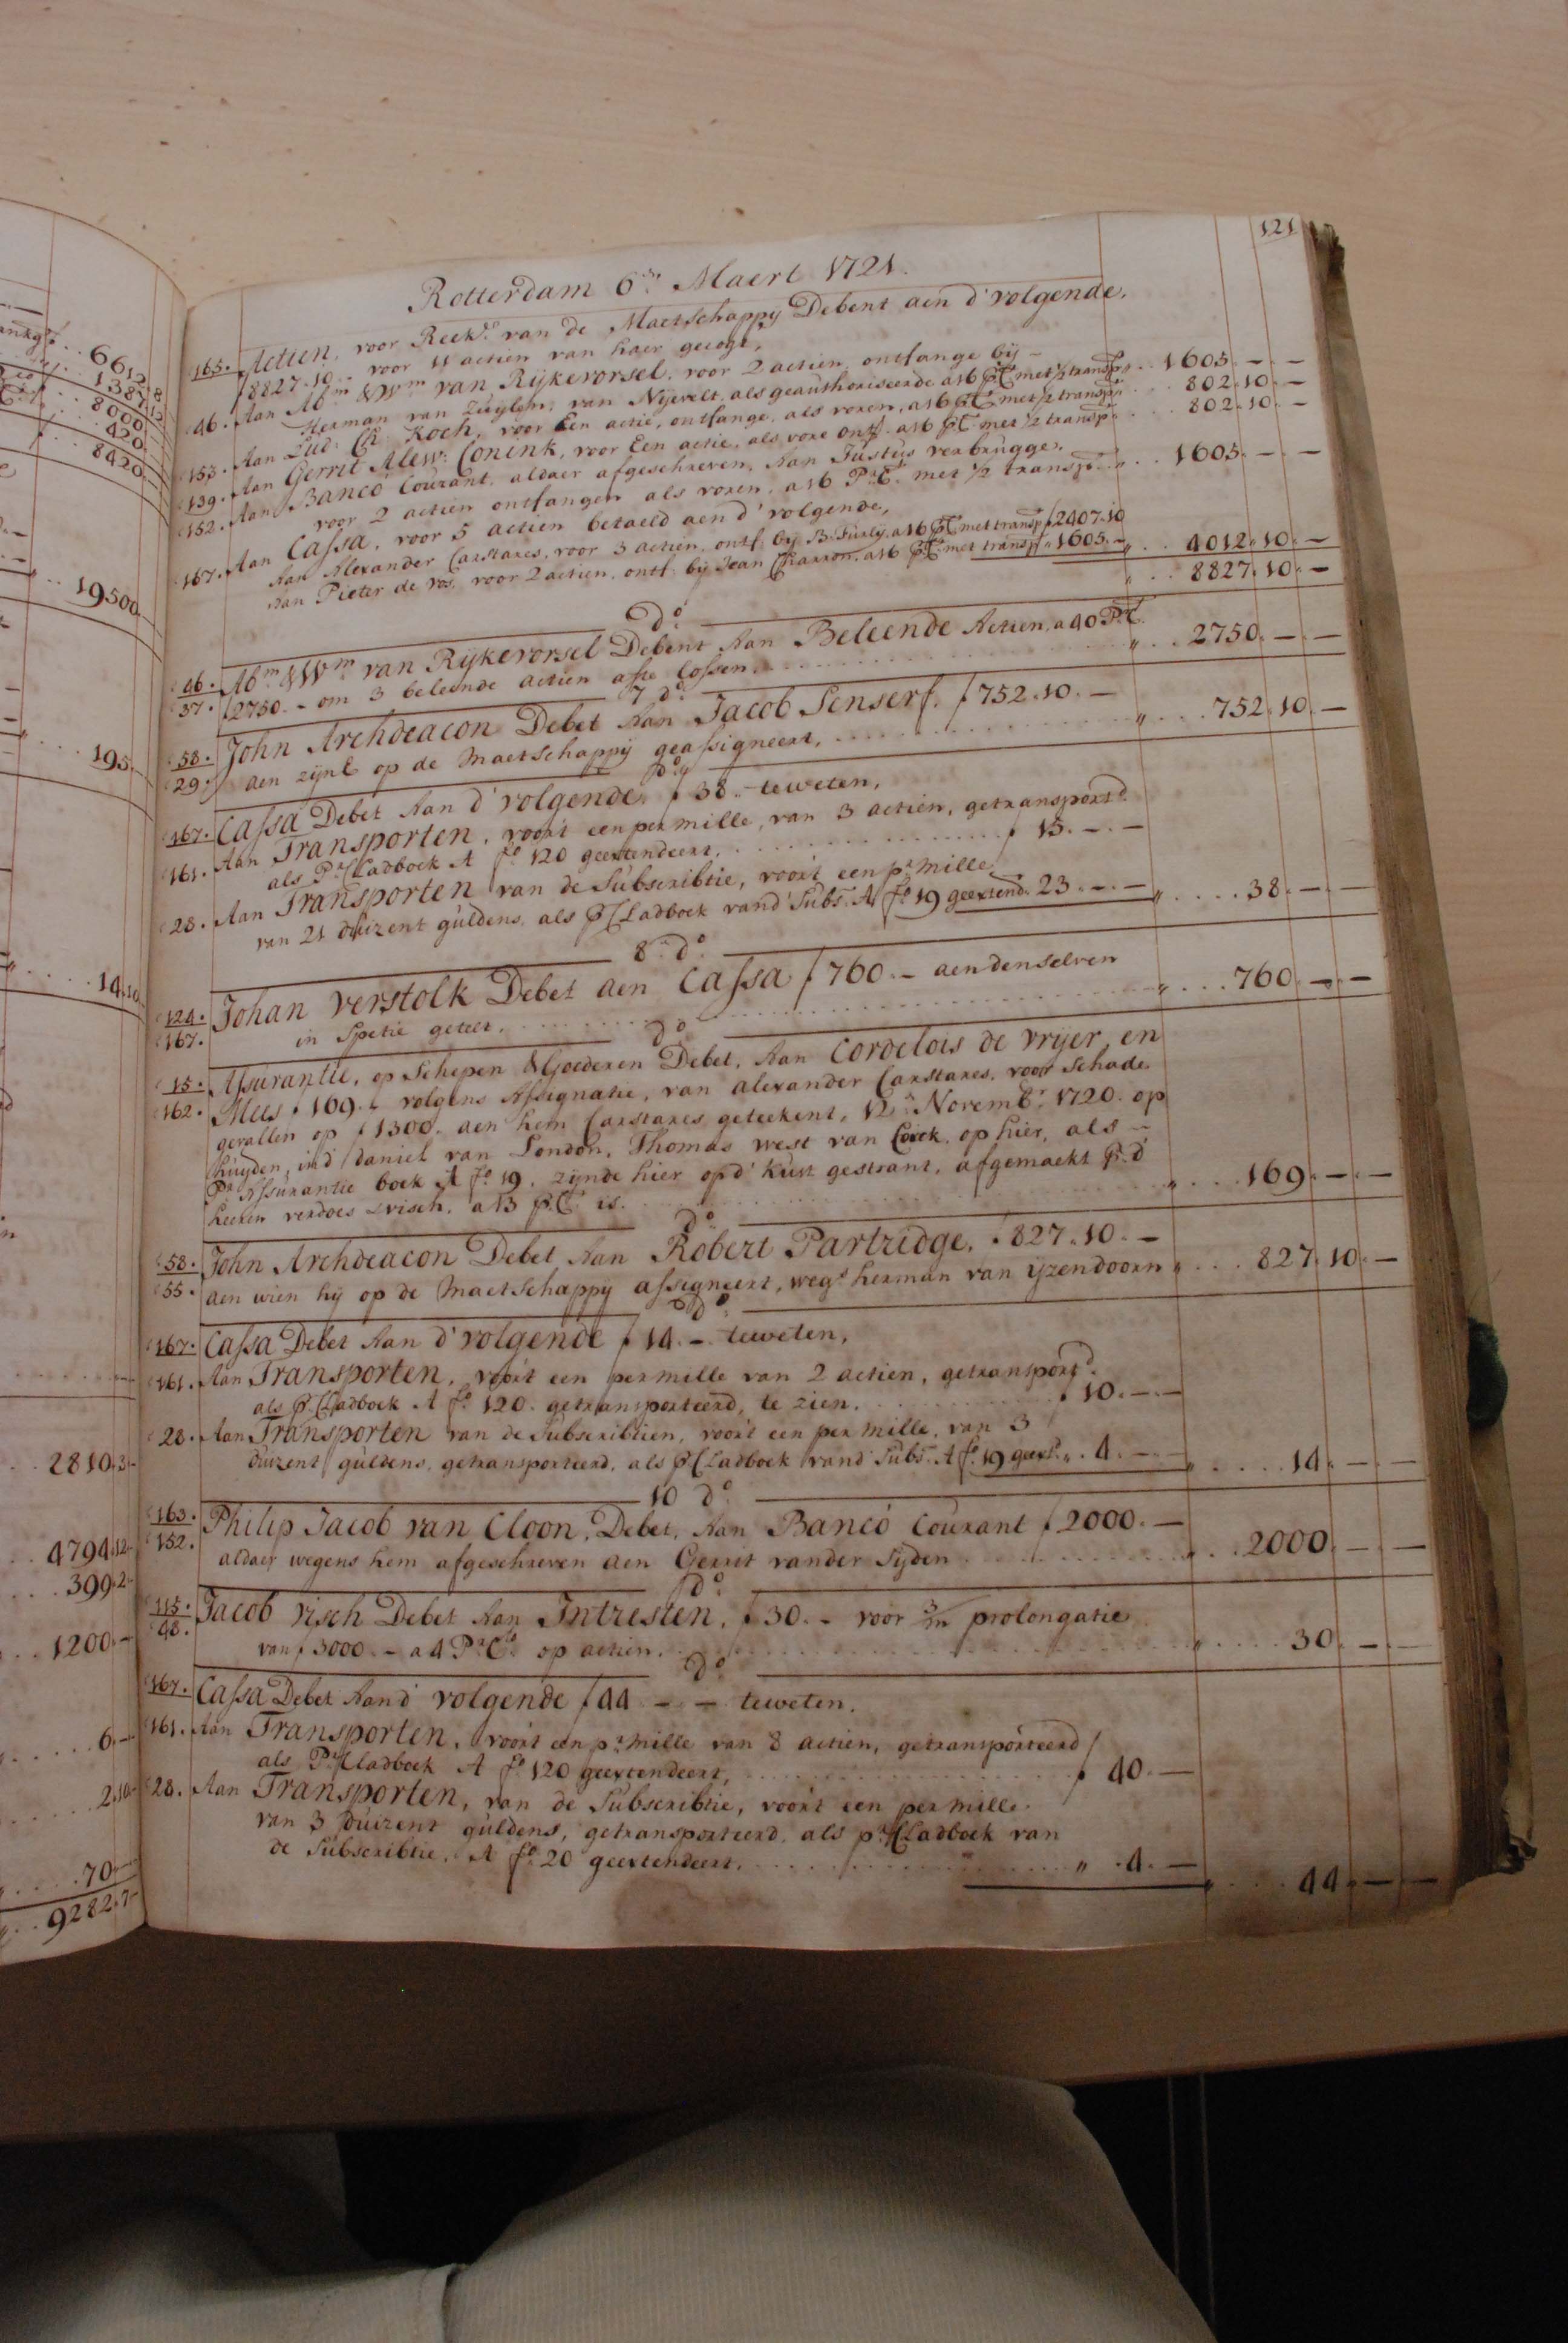 121
Rotterdam 6en Maert 1721.
165. Actien, voor Reekg van de Maetschappij Debent aen d'volgende,
ƒ8827.10.. voor 11 actien van haer gecogt,
46. Aan Abm & Wm van Rijkevorsel, voor 2 actien ontfange bij –
Herman van Zuylen, van Nijevelt, als geauthoriseerde a 16 PrCt met ½ transpt .. 1605. – . –
153. Aan Lud: Ch: Koch, voor Een actie, ontfange, als voren, a 16 PrCt met ½ transpt .. 802.10. –
139. Aan Gerrit Alew: Conink, voor Een actie, als vore ontf. a 16 PrCt met ½ transpt .. 802.10. –
152. Aan Banco Courant, aldaer afgeschreven, Aan Justus verbrugge,
voor 2 actien ontfangen als voren, a 16 PrCt met ½ transpt .. 1605. – . –
167. Aan Cassa, voor 5 actien betaeld aen d'volgende,
Aan Alexander Carstares, voor 3 actien, ontf: bij B: Furly, a 16 PrCt met transp ƒ2407.10
Aan Pieter de vos, voor 2 actien, ontf: bij Jean Charron, a 16 PrCt met transp ƒ" 1605. – " .. 4012.10. –
" .. 8827.10. –
Do
46. Abm & Wm van Rijkevorsel Debent Aan Beleende Actien, a 40 PrCt
37. ƒ2750. – om 3 beleende actien afte lossen. " .. 2750. – . –
7 do
58. John Archdeacon Debet Aan Jacob Senserf, ƒ752.10. –
29. aen zijnE op de Maetschappij geassigneert, " .. 752.10. –
Do
167. Cassa Debet Aan d'volgende, ƒ38. – teweten,
161. Aan Transporten, voor't een per mille, van 3 actien, getransportd
als Pr Cladboek A fo 120 geextendeert, ƒ 15. – . –
28. Aan Transporten van de Subscribtie, voor't een pr mille
van 21 duizent guldens, als Pr Cladboek vand' Subs: A fo 19 geextend. 23. – . – " .. 38. – . –
8n do
124. Johan verstolk Debet aen Cassa ƒ760. – aen denselven
167. in Spetie getelt, " .. 760. – . –
do
15. Assurantie, op Schepen & Goederen Debet, Aan Cordelois de vrijer, en
162. Mees ƒ169. – volgens Assignatie, van alexander Carstares, voor schade
gevallen op ƒ1300. aen hem Carstares geteekent, 12n Novemb: 1720. op
huijden, ind' daniel van London, Thomas west van Corck, op hier, als –
Pr Assurantie boek A fo 19. zijnde hier op d' kust gestrant, afgemaekt Pr d'
heeren verdoes & visch, a 13 PrCt is. " .. 169. – . –
do
58. John Archdeacon Debet Aan Robert Partridge, ƒ827.10. –
55. aen wien hij op de Maetschappij assigneert, wegs herman van ijzendoorn " .. 827.10. –
Do
167. Cassa Debet Aan d'volgende ƒ14. – teweten,
161. Aan Transporten, voor't een per mille van 2 actien, getransportd
als Pr Cladboek A fo 120. getransporteerd, te zien. ƒ 10. – . –
28. Aan Transporten van de Subscribtien, voor't een per mille, van 3
duizent guldens, getransporteerd, als Pr Cladboek vand' Subs: A fo 19 geext. " . 4. – . – " .. 14. – . –
10 do
163. Philip Jacob van Cloon, Debet, Aan Banco Courant ƒ2000. –
152. aldaer wegens hem afgeschreven aen Gerrit vander Sijden " .. 2000. – . –
do
115. Jacob visch Debet Aan Intresten, ƒ30. – voor 3/m prolongatie
48. van ƒ3000. – a 4 PrCto op actien. " .. 30. – . –
do
167. Cassa Debet Aan d' volgende ƒ44 – – teweten.
161. Aan Transporten, voor't een pr mille van 8 actien, getransporteerd
als Pr Cladboek A fo 120 geextendeert, ƒ 40. –
28. Aan Transporten, van de Subscribtie, voor't een per mille
van 3 duizent guldens, getransporteerd, als pr Cladboek van
de Subscribtie, A fo 20 geextendeert. " . 4. – " .. 44. – . –
6612.8
1387.12
8000
420
8420
19500
195
14.10
2810.3
4794.12
399.2
1200. –
6. –
2.10
70
9282.7